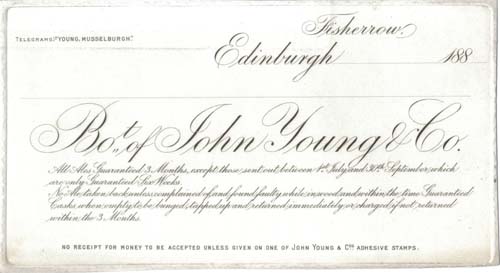 Fisherrow.
TELEGRAMS, "YOUNG, MUSSELBURGH."
Edinburgh 188
Bot. of John Young & Co.
All Ales Guaranteed 3 Months, except those sent out between 1st July and 30th September, which
are only Guaranteed Six Weeks.
No Ale taken back unless complained of, and found faulty, while in wood and within the time Guaranteed
Casks when empty to be bunged, topped up and returned immediately or charged if not returned
within the 3 Months.
NO RECEIPT FOR MONEY TO BE ACCEPTED UNLESS GIVEN ON ONE OF JOHN YOUNG & COS ADHESIVE STAMPS.